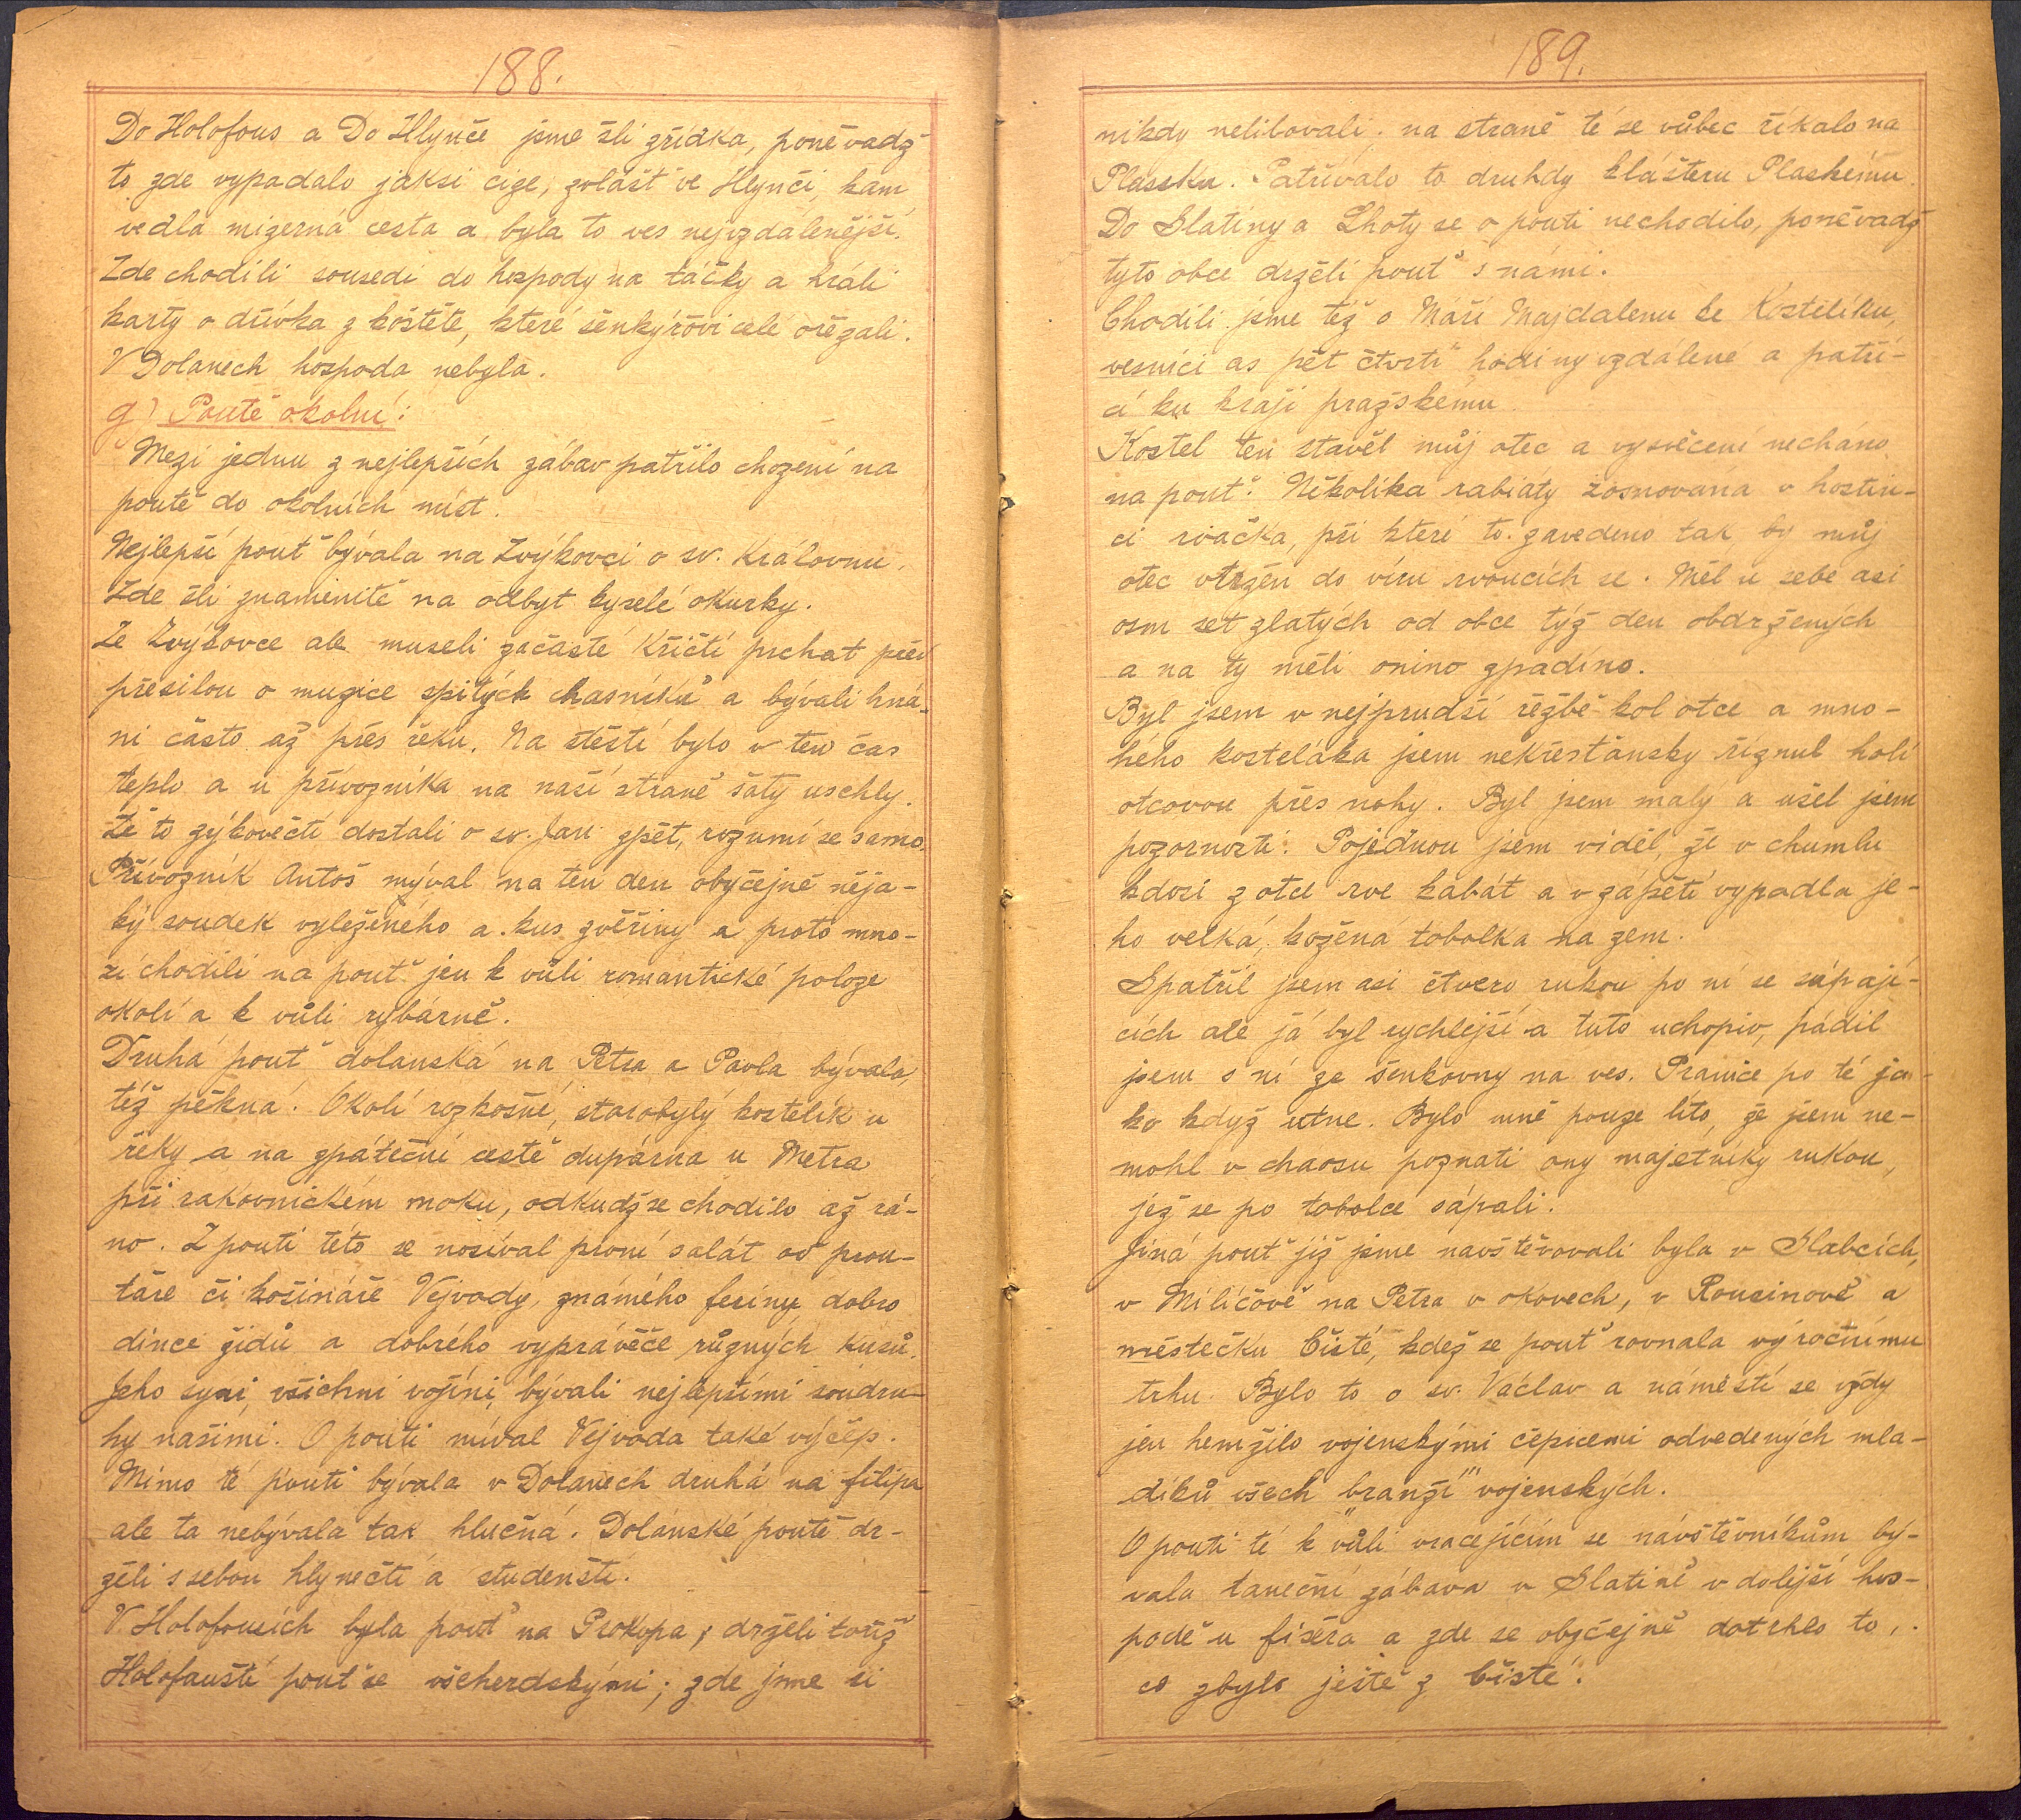 188.
Do Holofous a Do Hlynče jsme šli zřídka, poněvadž
to zde vypadalo jaksi cize, zvlášť ve Hlynči, kam
vedla mizerná cesta a byla to ves nejvzdálenější.
Zde chodili sousedi do hospody na táčky a hráli
karty o dřívka z koštěte, které šenkýřovi celé ořezali.
V Dolanech hospoda nebyla.
g) Poutě okolní:
Mezi jednu z nejlepších zábav patřilo chození na
poutě do okolních míst.
Nejlepší pouť bývala na Zvýkovci o sv. Královnu.
Zde šli znamenitě na odbyt kyselé okurky.
Ze Zvýkovce ale museli začasté Křičtí prchat před
přesilou o muzice spitých chasníků a bývali hná-
ni často až přes řeku. Na štěstí bylo v ten čas
teplo a u přívozníka na naší straně šaty uschly.
Že to zýkovečtí dostali o sv. Janu zpět, rozumí se samo.
Přívozník Antoš mýval na ten den obyčejně něja-
ký soudek vyleženého a kus zvěřiny a proto mno-
zí chodili na pouť jen k vůli romantické poloze
okolí a k vůli rybárně.
Druhá pouť dolanská na Petra a Pavla bývala
též pěkná. Okolí rozkošné, starobylý kostelík u
řeky a na zpáteční cestě dupárna u Metra
při rakovnickém moku, odkudž se chodilo až rá-
no. Z pouti této se nosíval první salát od prou-
taře či košináře Vejvody, známého feriny, dobro
dince židů a dobrého vypravěče různých kusů.
Jeho syni, všichni vojíni, bývali nejlepšími soudru-
hy našimi. O pouti míval Vejvoda také výčep.
Mimo té pouti bývala v Dolanech druhá na filipa
ale ta nebývala tak hlučná. Dolanské poutě dr-
želi s sebou hlynečtí a studenští.
V Holofousích byla pouť na Prokopa, drželi tořiž
Holofauští pouť se všeherdskými; zde jsme si
189.
nikdy nelibovali; na straně té se vůbec říkalo na
Plassku. Patřívalo to druhdy klášteru Plaskému.
Do Slatiny a Lhoty se o pouti nechodilo, poněvadž
tyto obce drželi pouť s námi.
Chodili jsme též o Máří Majdalenu ke Kostelíku,
vesnici as pět čtvrtí hodiny vzdálené a patří-
cí ku kraji pražskému.
Kostel ten stavěl můj otec a vysvěcení necháno
na pouť. Několika rabiáty zosnována v hostin-
ci rvačka, při které to zavedeno tak, by můj
otec vtržen do víru rvoucích se. Měl u sebe asi
osm set zlatých od obce týž den obdržených
a na ty měli onino zpadíno.
Byl jsem v nejprudší řežbě kol otce a mno-
hého kosteláka jsem nekřesťansky říznul holí
otcovou přes nohy. Byl jsem malý a ušel jsem
pozornosti. Pojednou jsem viděl, že v chumlu
kdosi z otce rve kabát a v zápětí vypadla je-
ho velká, kožená tobolka na zem.
Spatřil jsem asi čtvero rukou po ní se sápají-
cích ale já byl rychlejší a tuto uchopiv, pádil
jsem s ní ze šenkovny na ves. Pranice po té ja-
ko když utne. Bylo mně pouze líto, že jsem ne-
mohl v chaosu poznati ony majetníky rukou,
jež se po tobolce sápali.
Jiná pouť již jsme navštěvovali byla v Slabcích,
v Milíčově na Petra v okovech, v Rousinově a
městečku Čisté, kdež se pouť rovnala výročnímu
trhu. Bylo to o sv. Václav a náměstí se vždy
jen hemžilo vojenskými čepicemi odvedených mla-
díků všech "branží" vojenských.
O pouti té k vůli vracejícím se návštěvníkům bý-
vala taneční zábava v Slatině v dolejší hos-
podě u fišera a zde se obyčejně dotrhlo to,
co zbylo ještě z Čisté.